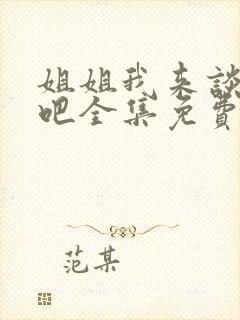 姐姐我来談
吧全集免費
范某